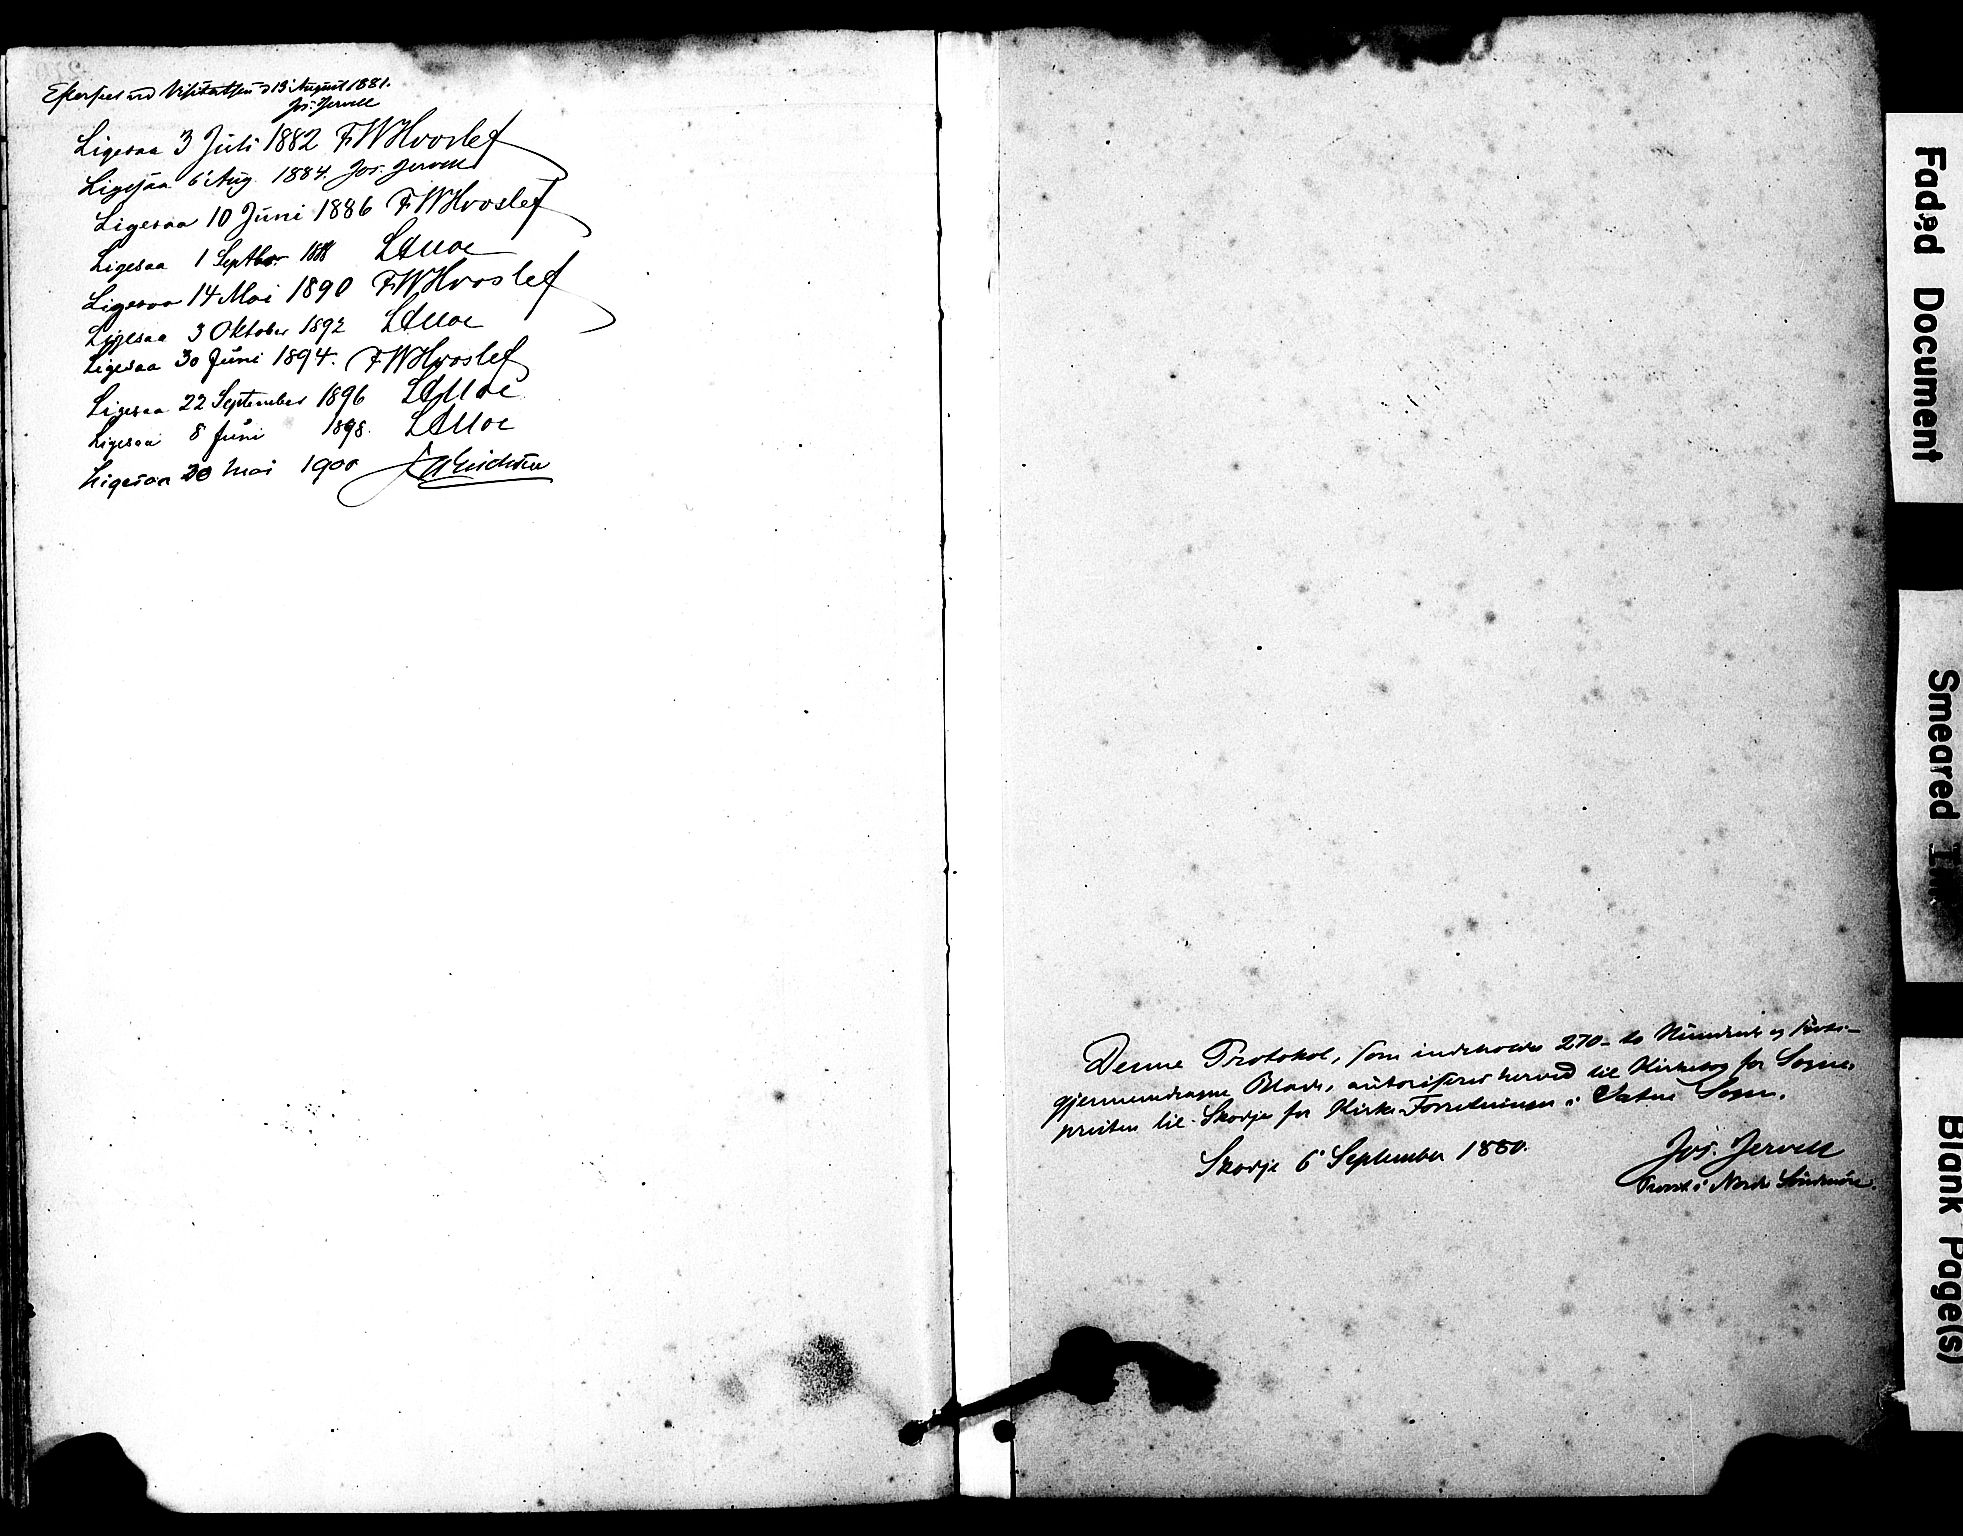 Efterseet ved Visitatsen d 13 August 1881.
Jos. Jervell
Ligesaa 3 Juli 1882 F W Hvoslef
Ligesaa 6 Aug. 1884. Jos. Jervell
Ligesaa 10 Juni 1886 F W Hvoslef
Ligesaa 1 Septbr. 1888 L A Moe
Ligesaa 14 Mai 1890 F W Hvoslef
Ligesaa 3 Oktober 1892 L A Moe
Ligesaa 30 Juni 1894. F W Hvoslef
Ligesaa 22 September 1896 L A Moe
Ligesaa 8 Juni 1898. L A Moe
Ligesaa 30 Mai 1900
Denne Protokol, som indeholder 270 - to Hundrede og sytti -
gjennemdragne Blade, autoriseres herved til Kirkebog for Sogne-
præsten til Skodje for Kirke-Forretninger i Vatne Sogn.
Skodje 6 September 1880.
Jos. Jervell
Provst i Nordre Söndmöre.
Faded Document
Smeared Ink
Blank Page(s)